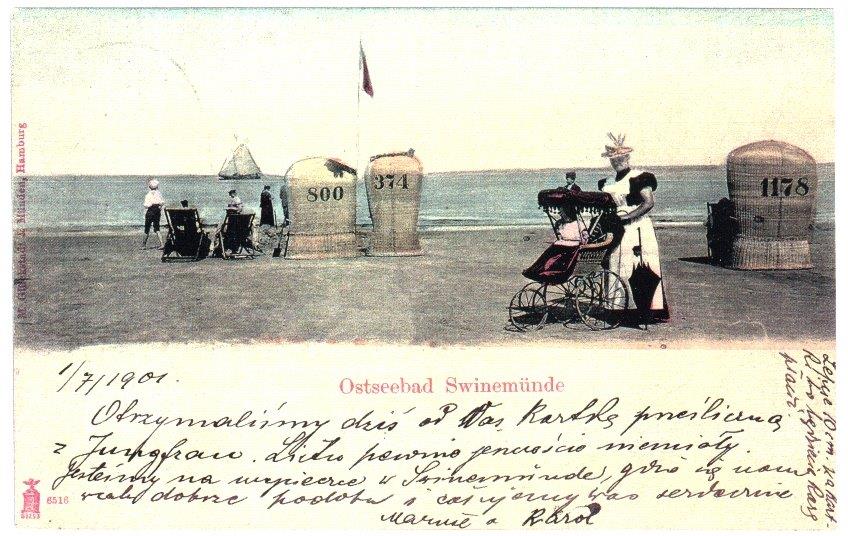 800
374
1178
M. Glückstadt & Münden, Hamburg
1/7/1901.
Ostseebad Swinemünde
Otrzymaliśmy dziś od Was kartkę prześliczną
z Jungfrau. Listu pewnie jeszcze nie miały.
Jesteśmy na wycieczce w Swinemünde, gdzie się nam
wcale dobrze podoba i całujemy was serdecznie
Marnie a Karol
6516
Lepię 10 cm. za kart-